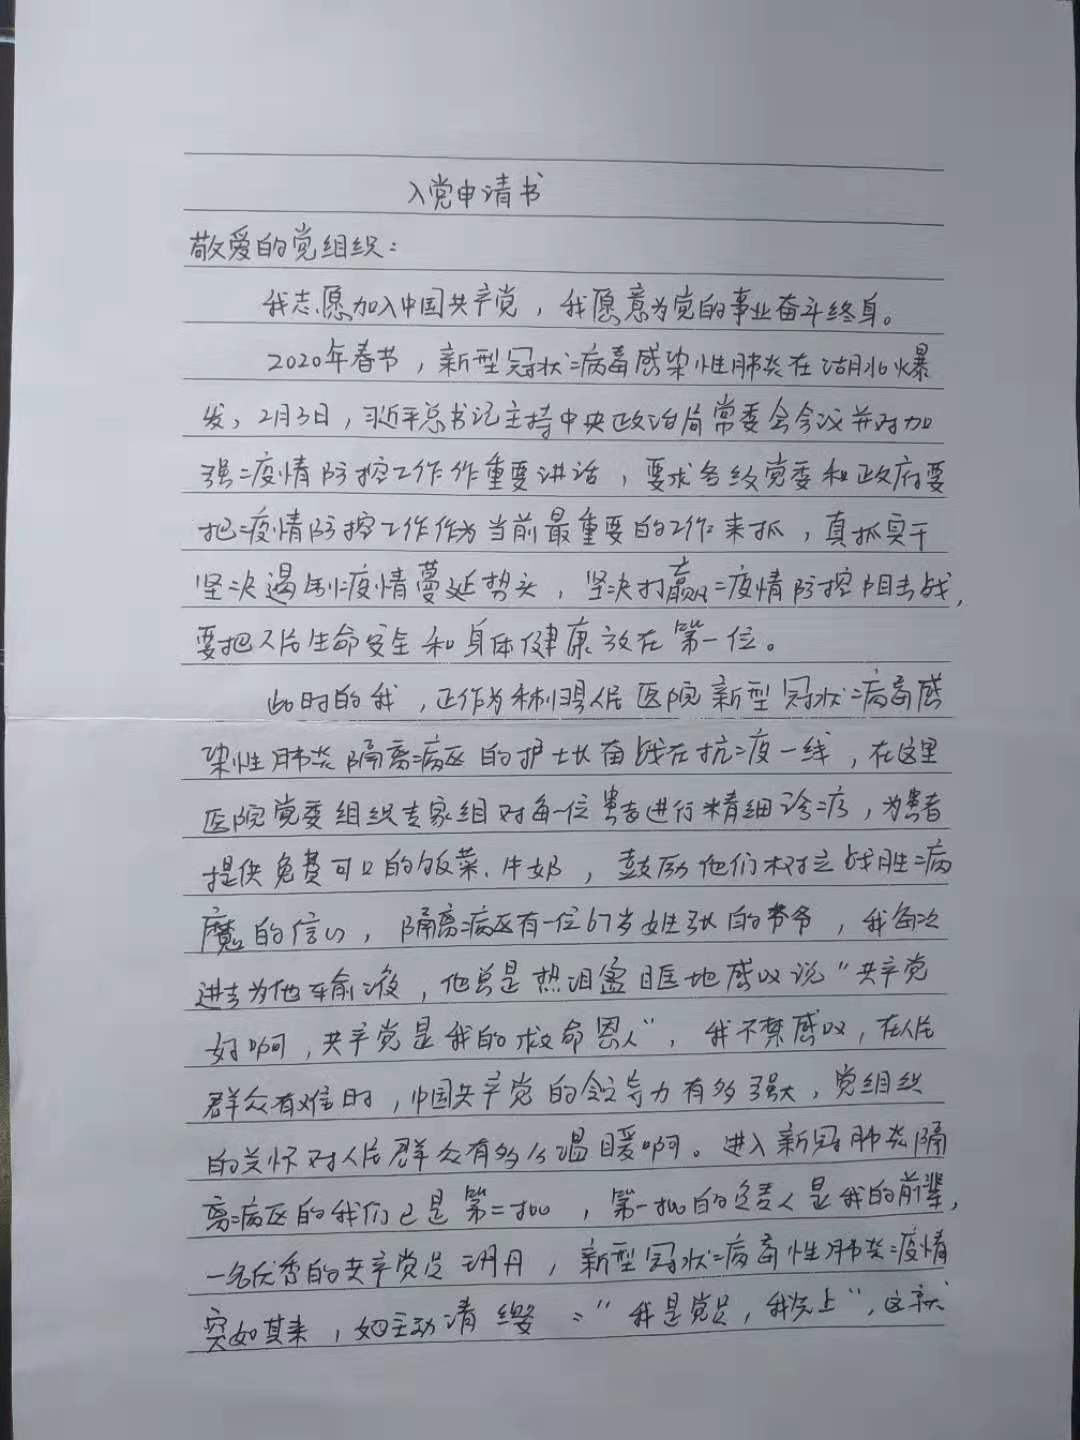 入党申请书
敬爱的党组织：
我志愿加入中国共产党，我愿意为党的事业奋斗终身。
2020年春节，新型冠状病毒感染性肺炎在湖北爆
发，2月3日，习近平总书记主持中央政治局常委会会议并对加
强疫情防控工作作重要讲话，要求各级党委和政府要
把疫情防控工作作为当前最重要的工作来抓，真抓实干
坚决遏制疫情蔓延势头，坚决打赢疫情防控阻击战，
要把人民生命安全和身体健康放在第一位。
此时的我，正作为县人民医院新型冠状病毒感
染性肺炎隔离病区的护士长奋战在抗疫一线，在这里
医院党委组织专家组对每一位患者进行精细诊疗，为患者
提供免费可口的饭菜、牛奶，鼓励他们树立战胜病
魔的信心，隔离病区有一位67岁姓张的爷爷，我每次
进去为他输液，他总是热泪盈眶地感叹说“共产党
好啊，共产党是我的救命恩人”，我不禁感叹，在人民
群众有难时，中国共产党的领导力有多强大，党组织
的关怀对人民群众有多么温暖啊。进入新冠肺炎隔
离病区的我们已是第二批，第一批的负责人是我的前辈，
一名优秀的共产党员丹，新型冠状病毒性肺炎疫情
突如其来，她主动请缨：“我是党员，我先上”，这就